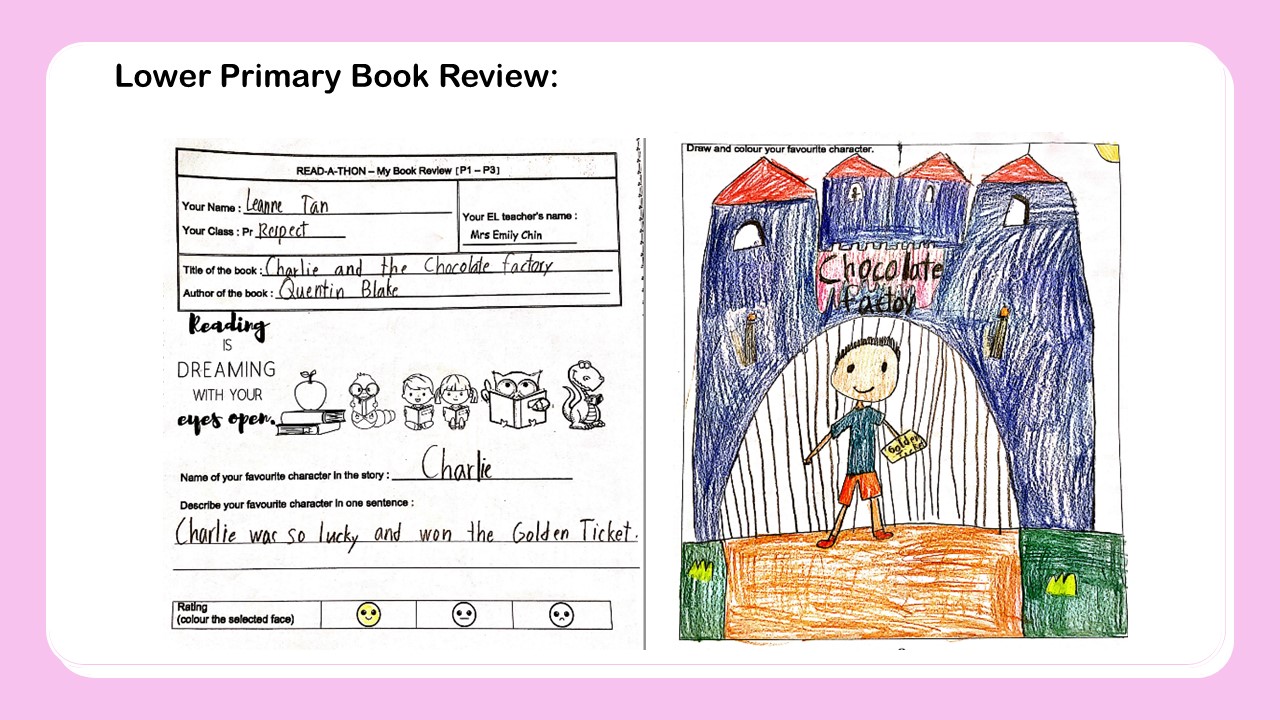 Lower Primary Book Review:
READ-A-THON – My Book Review [P1 – P3]
Your Name : Leanne Tan
Your Class : Pr Respect
Your EL teacher's name :
Mrs Emily Chin
Title of the book : Charlie and the Chocolate factory
Author of the book : Quentin Blake
Reading
IS
DREAMING
WITH YOUR
eyes open.
Name of your favourite character in the story : Charlie
Describe your favourite character in one sentence :
Charlie was so lucky and won the Golden Ticket.
Rating
(colour the selected face)
Draw and colour your favourite character.
Chocolate
factoy
Golden